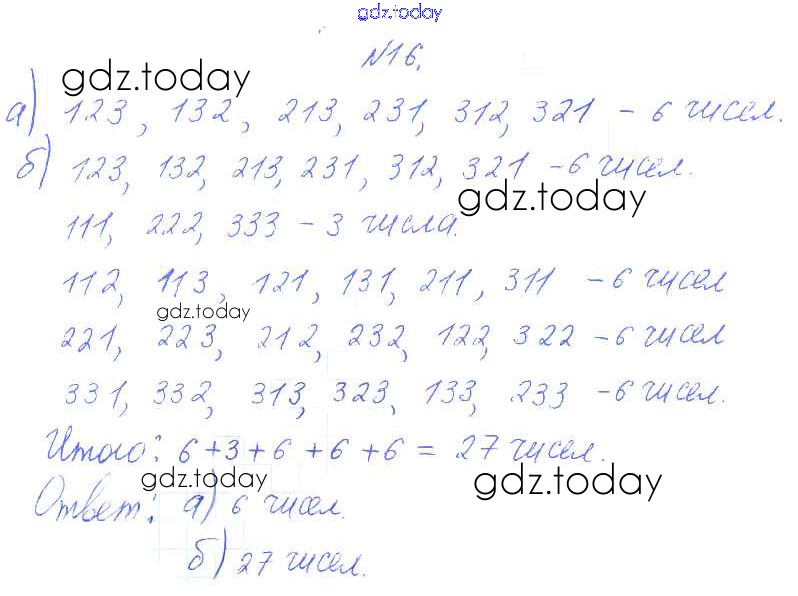 gdz.today
№16.
gdz.today
а) 123, 132, 213, 231, 312, 321 - 6 чисел.
б) 123, 132, 213, 231, 312, 321 - 6 чисел.
gdz.today
111, 222, 333 - 3 числа.
112, 113, 121, 131, 211, 311 - 6 чисел
gdz.today
221, 223, 212, 232, 122, 322 - 6 чисел
331, 332, 313, 323, 133, 233 - 6 чисел.
Итого: 6+3+6+6+6 = 27 чисел.
gdz.today gdz.today
Ответ: а) 6 чисел.
б) 27 чисел.